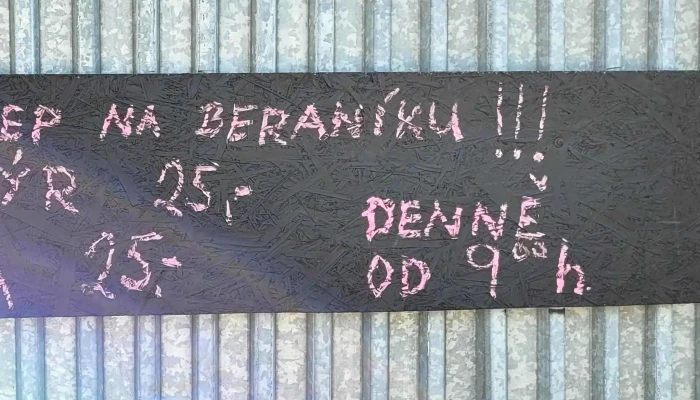 EP NA BERANÍKU !!!
ÝR 25,-
25,-
DENNĚ
OD 9⁰⁰ h.